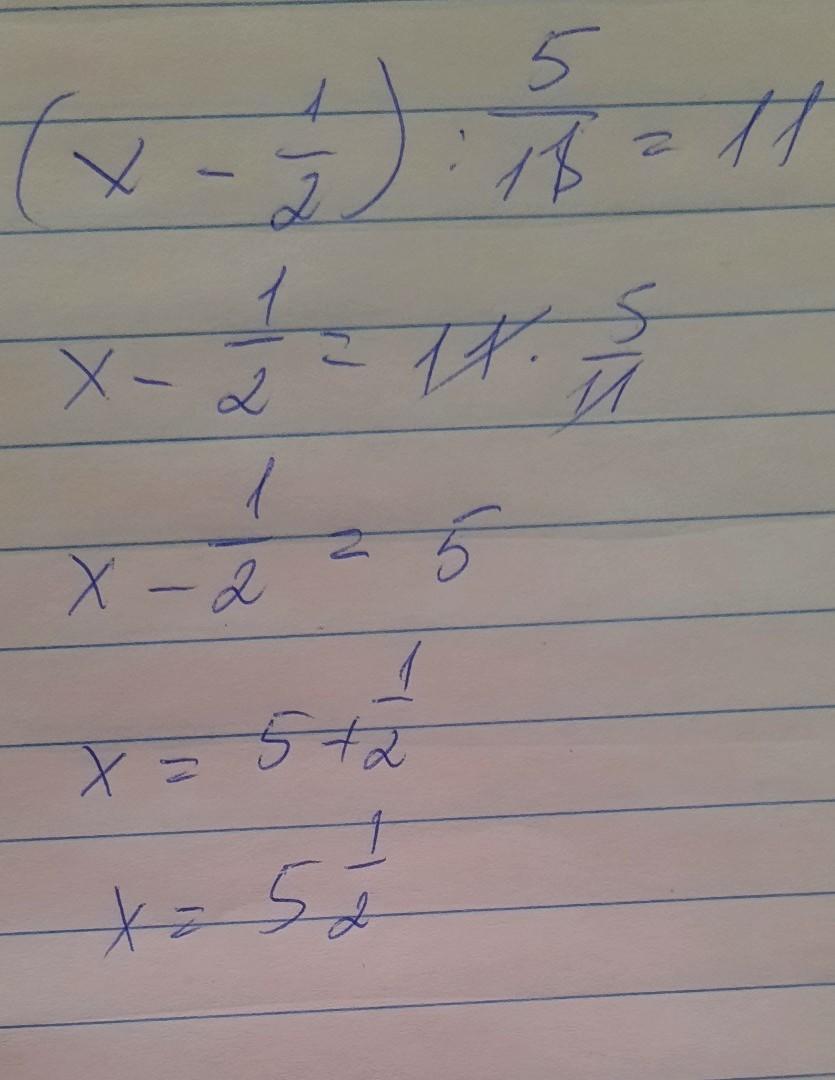 (x - 1/2) : 5/11 = 11
x - 1/2 = 11 · 5/11
x - 1/2 = 5
x = 5 + 1/2
x = 5 1/2